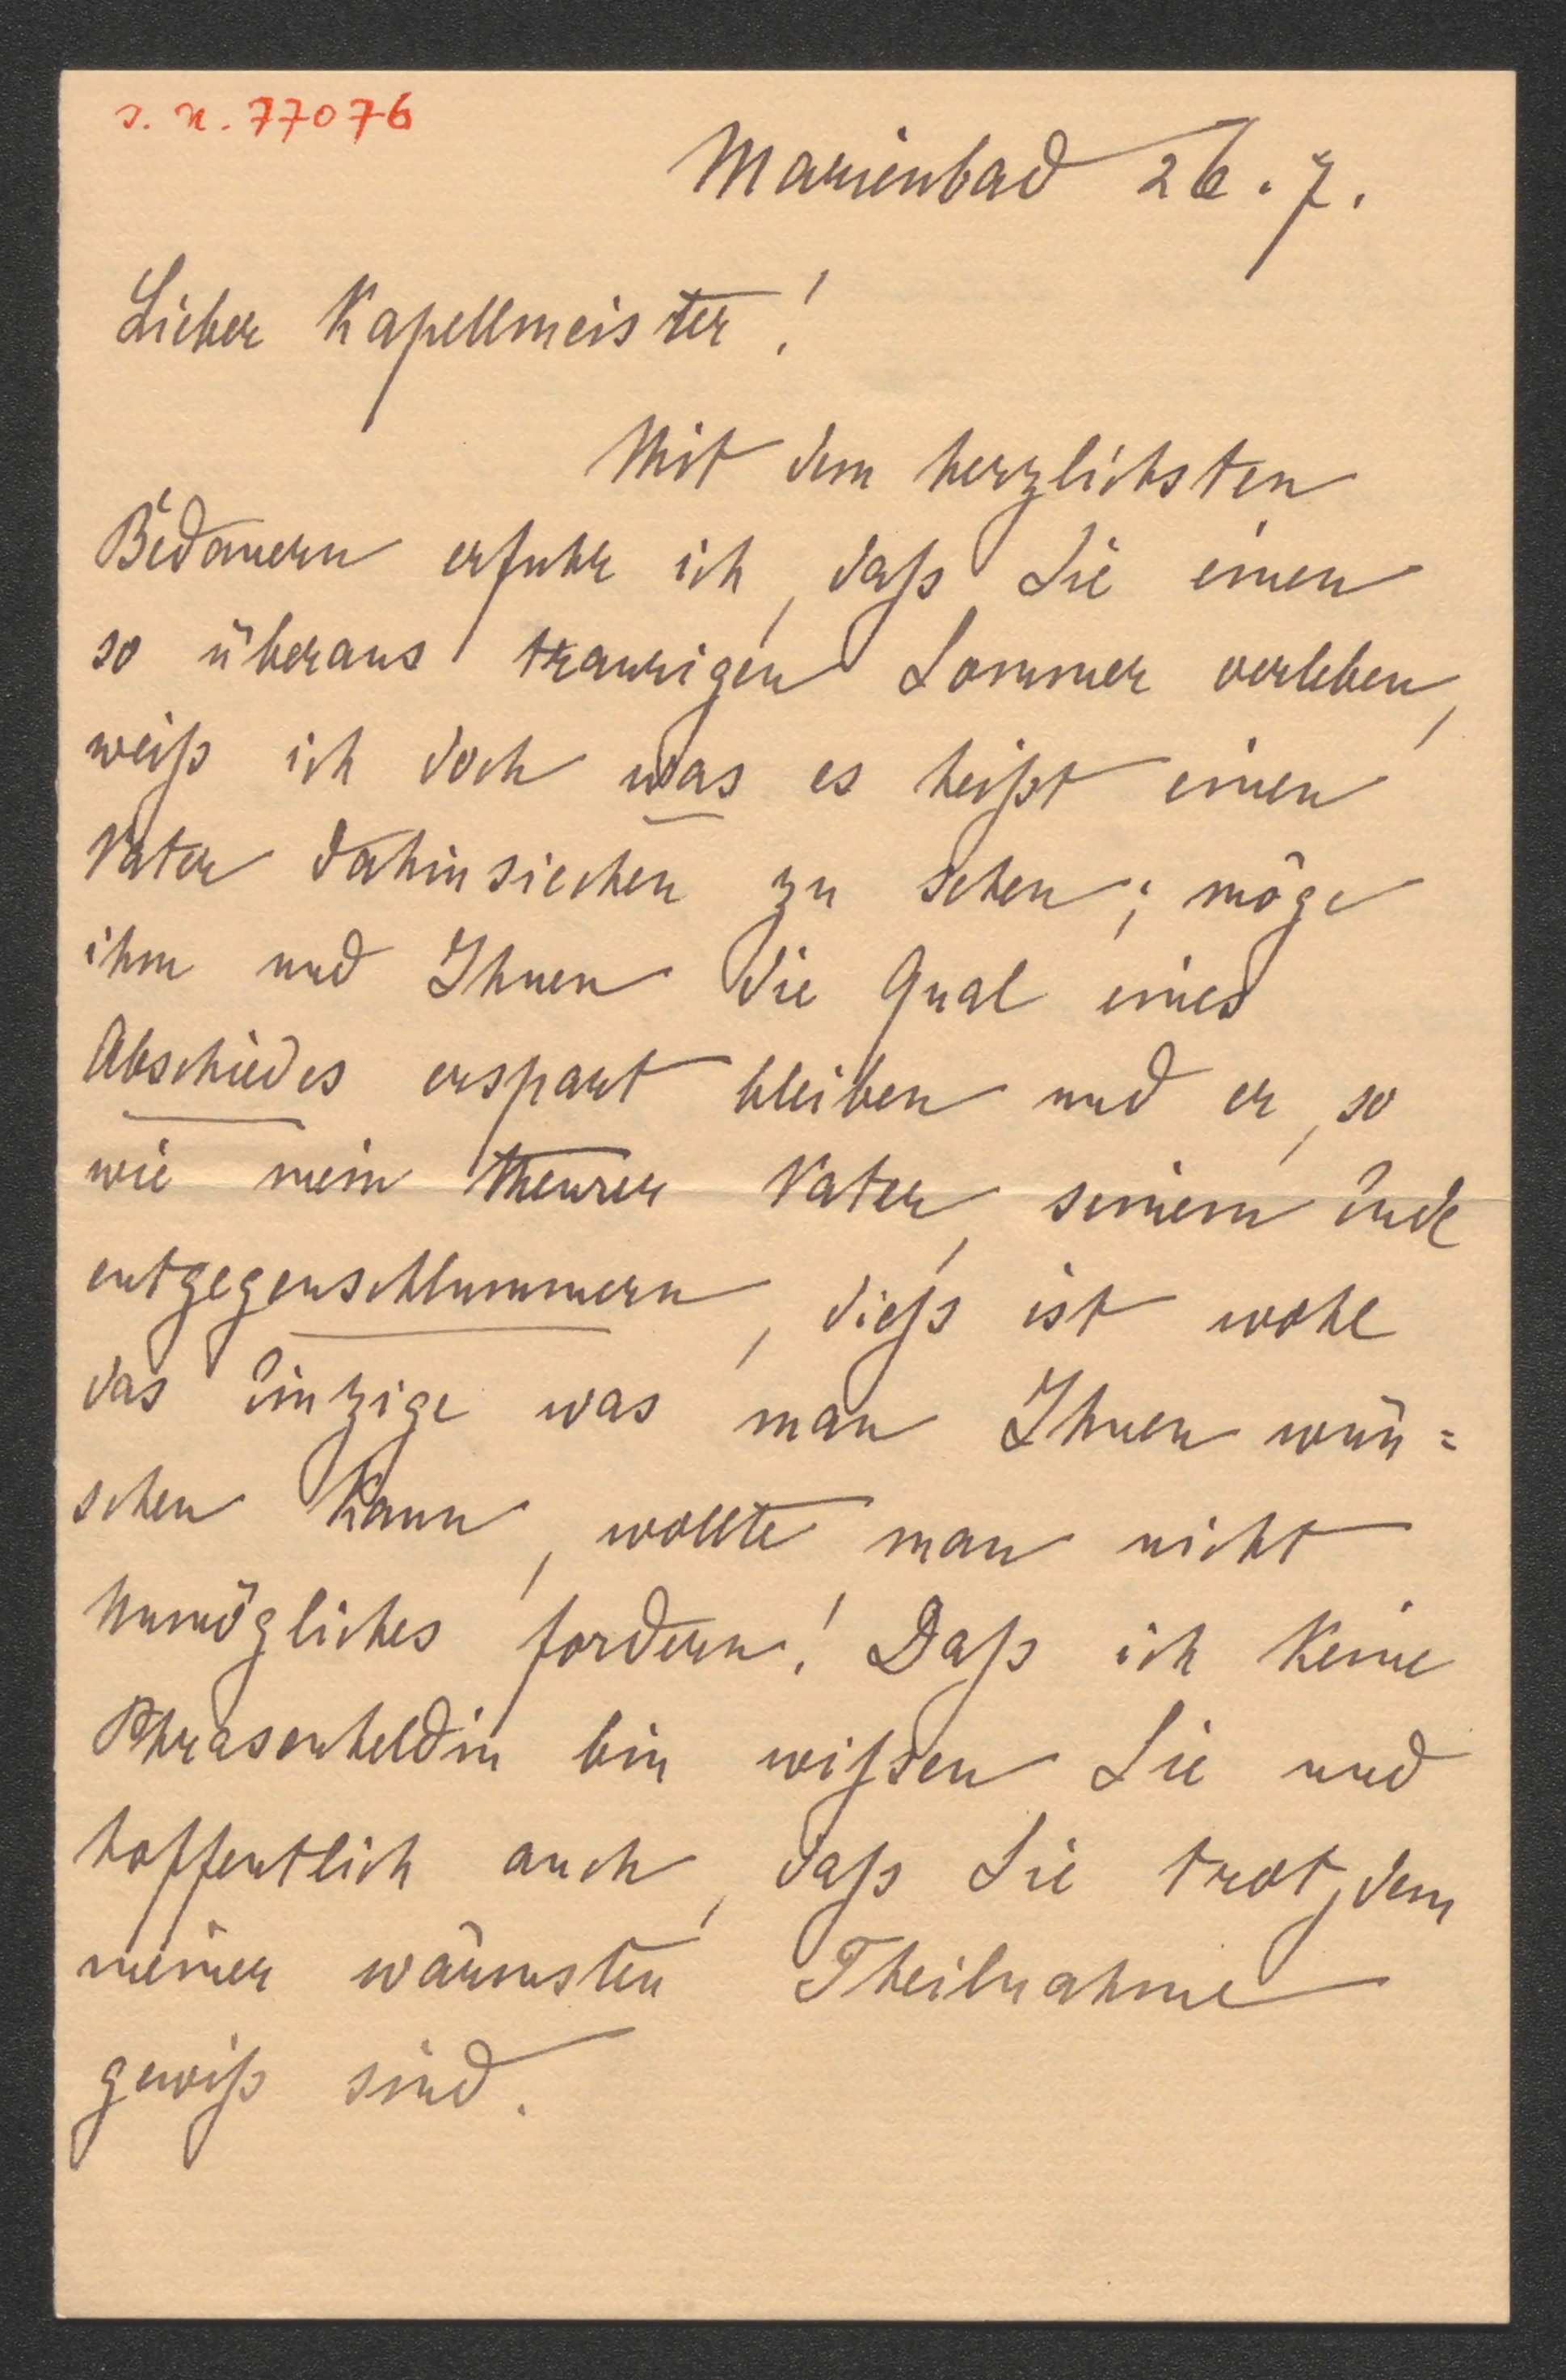 s. n. 77076
Marienbad 26. 7.
Lieber Kapellmeister!
Mit dem herzlichsten
Bedauern erfuhr ich, daß Sie einen
so überaus traurigen Sommer verleben,
weiß ich doch was es heißt einen
Vater dahinsiechen zu sehen; möge
ihm und Ihnen die Qual eines
Abschiedes erspart bleiben und er, so
wie mein theurer Vater, seinem Ende
entgegenschlummern, dieß ist wohl
das Einzige was man Ihnen wün=
schen kann, wollte man nicht
Unmögliches fordern! Daß ich keine
Phrasenheldin bin wißen Sie und
hoffentlich auch, daß Sie trotzdem
meiner wärmsten Theilnahme
gewiß sind.